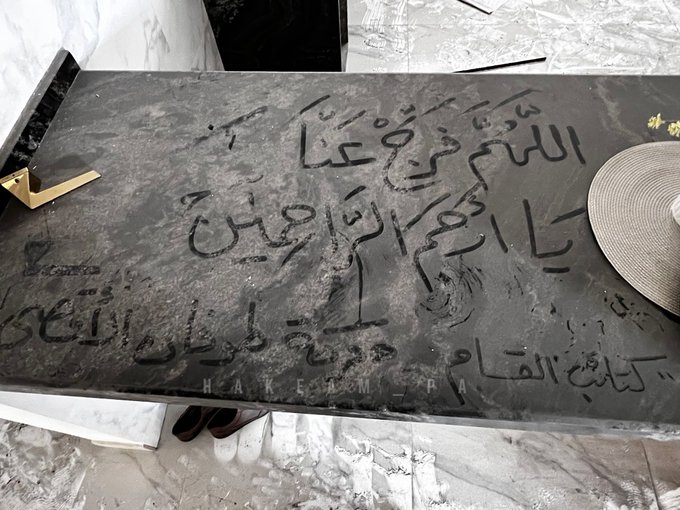 اللَّهُمَّ فَرِّجْ عَنَّا
يَا أَرْحَمَ الرَّاحِمِيْنَ
كتائب القسام
طوفان الأقصى
HAKEAM_PA